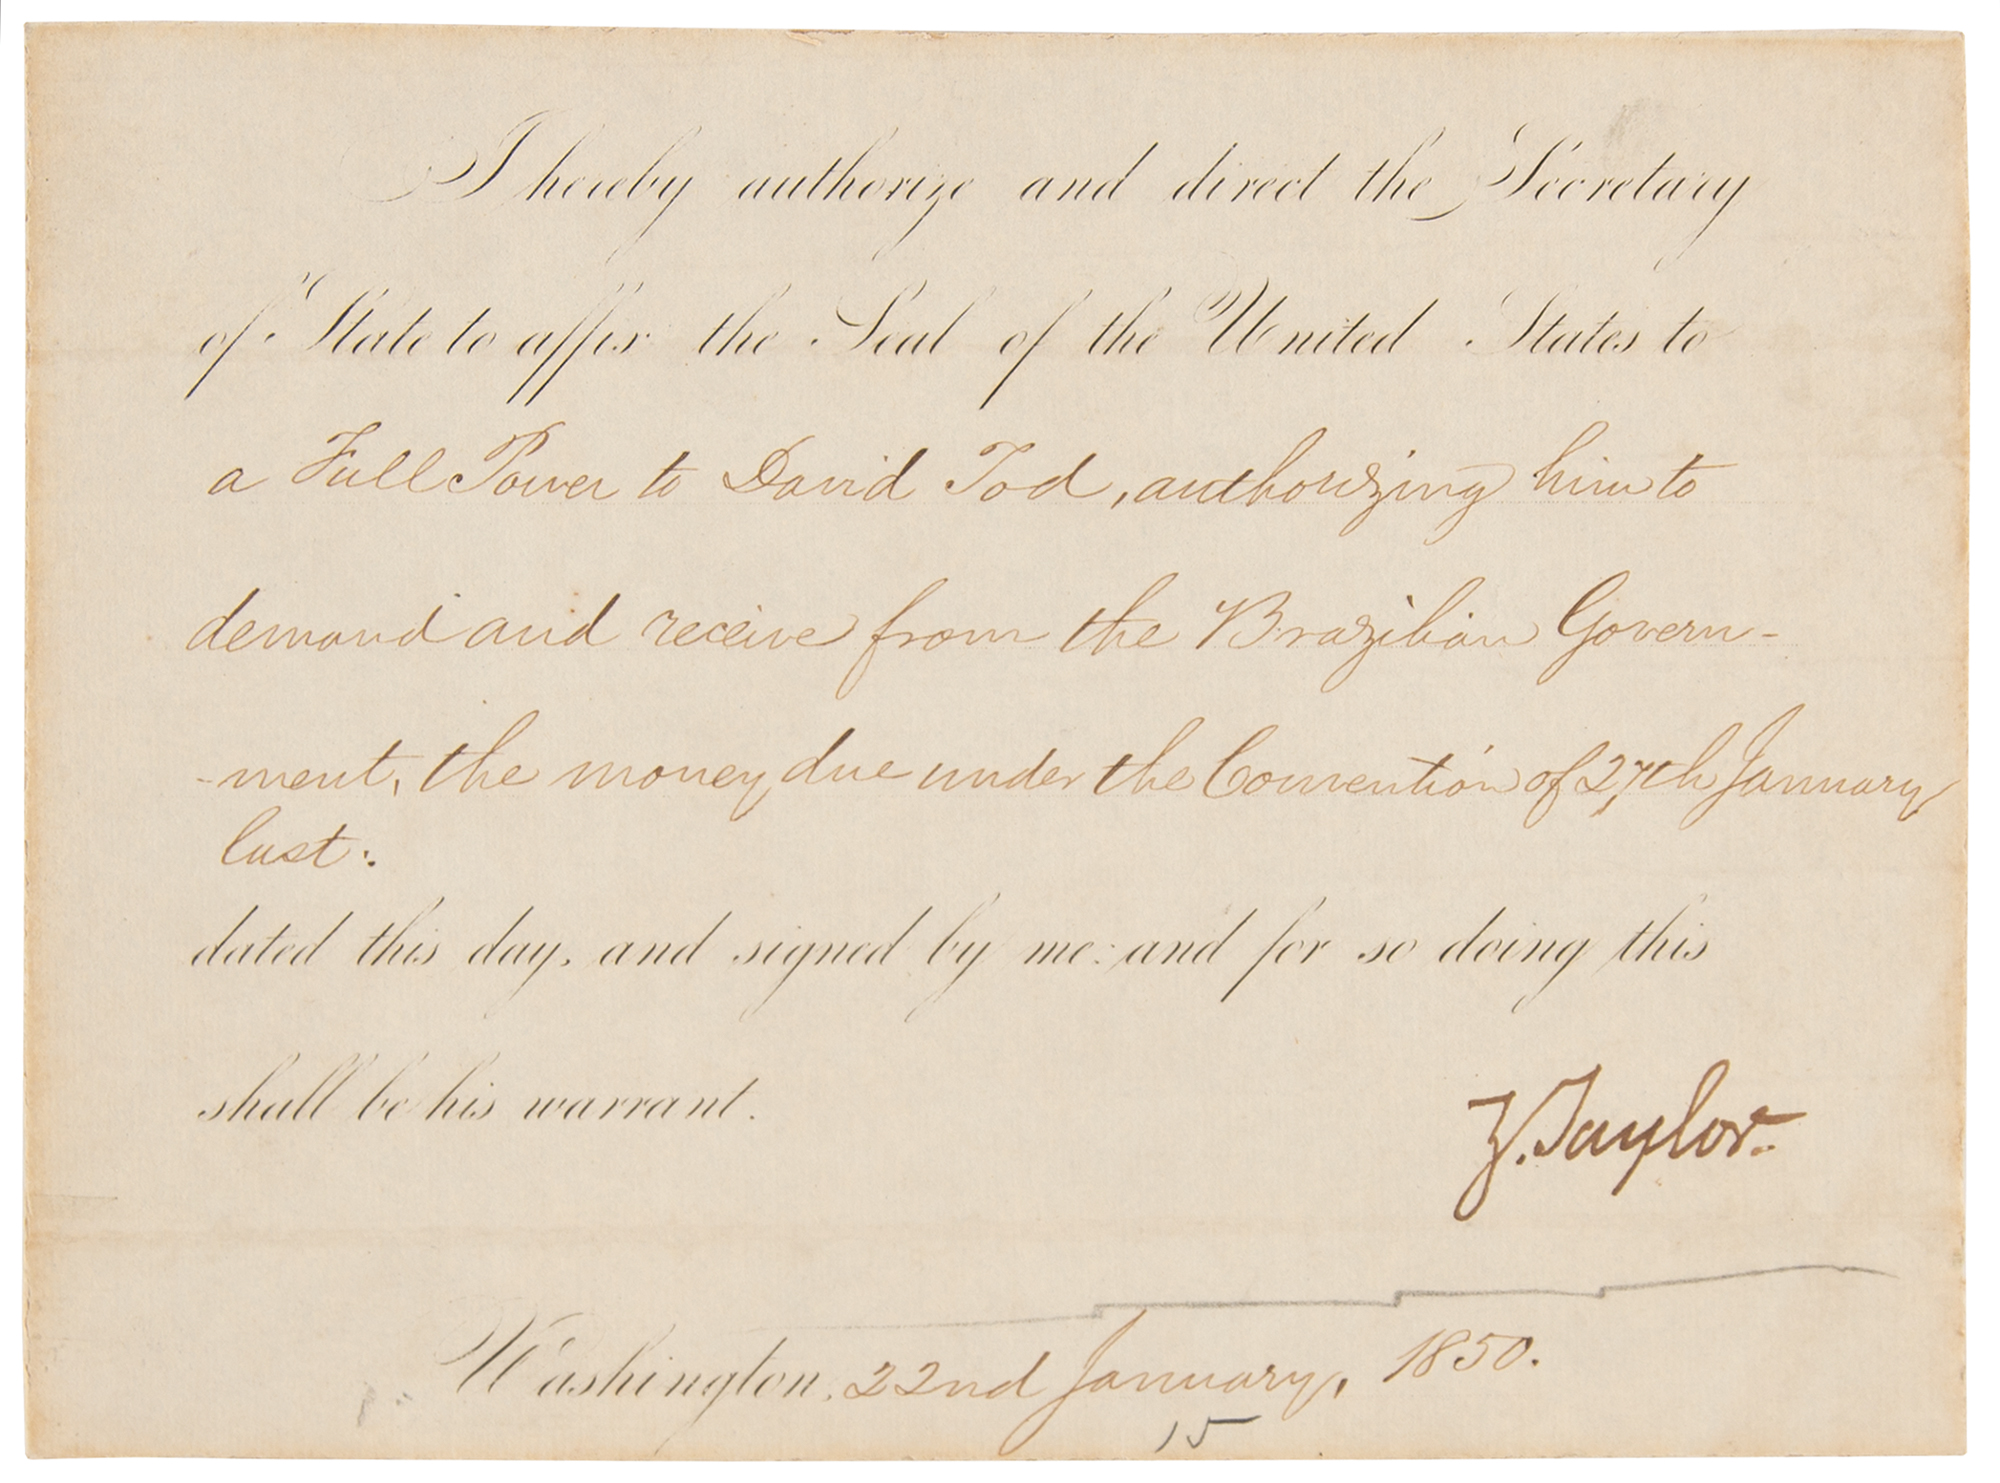 I hereby authorize and direct the Secretary
of State to affix the Seal of the United States to
a Full Power to David Tod, authorizing him to
demand and receive from the Brazilian Govern-
-ment, the money due under the Convention of 27th January
last:
dated this day, and signed by me: and for so doing this
shall be his warrant.
Z. Taylor.
Washington, 22nd January, 1850.
15